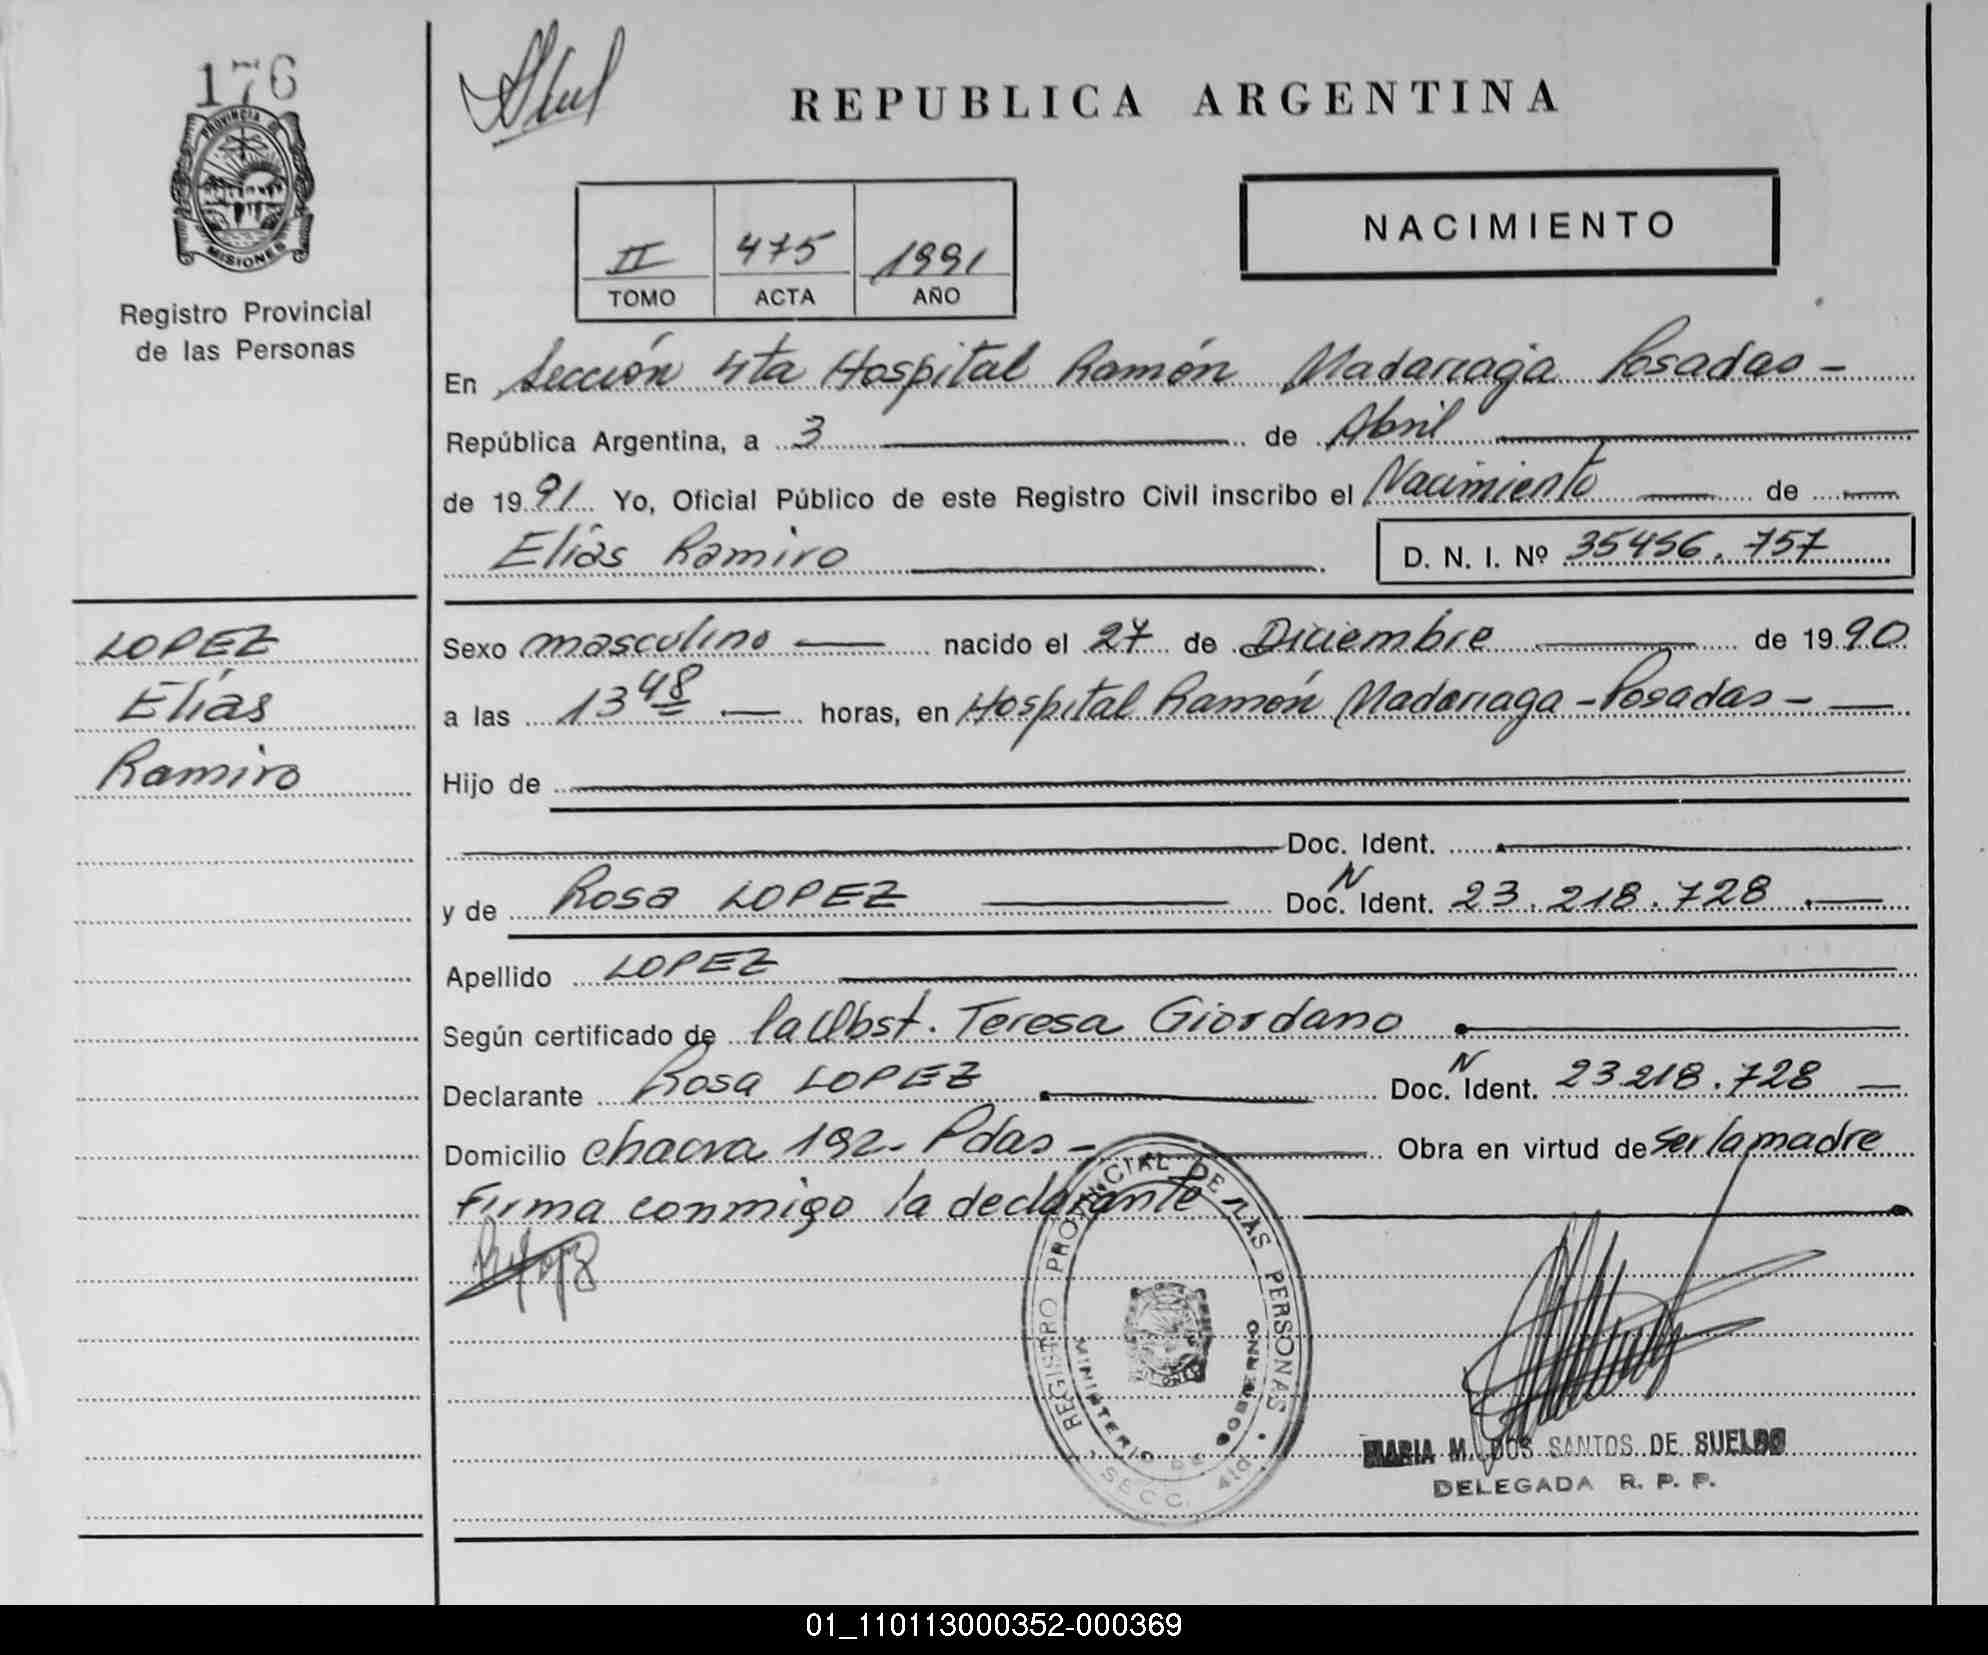 176
PROVINCIA DE
MISIONES
Registro Provincial
de las Personas
REPUBLICA ARGENTINA
NACIMIENTO
II 475 1991
TOMO ACTA AÑO
En Sección 4ta Hospital Ramón Madariaga Posadas -
República Argentina, a 3 de Abril
de 1991 Yo, Oficial Público de este Registro Civil inscribo el Nacimiento de
Elías Ramiro D. N. I. Nº 35456.757
LOPEZ
Elías
Ramiro
Sexo masculino nacido el 27 de Diciembre de 1990
a las 13 48 horas, en Hospital Ramón Madariaga - Posadas -
Hijo de
Doc. Ident.
y de Rosa LOPEZ Doc. N Ident. 23.218.728.
Apellido LOPEZ
Según certificado de la Obst. Teresa Giordano
Declarante Rosa LOPEZ Doc. N Ident. 23218.728
Domicilio chacra 192- Pdas - Obra en virtud de ser la madre
Firma conmigo la declarante
REGISTRO PROVINCIAL DE LAS PERSONAS
MINISTERIO DE GOBIERNO
SECC. 4ta
MARIA M. DOS SANTOS DE SUELDO
DELEGADA R. P. P.
01_110113000352-000369